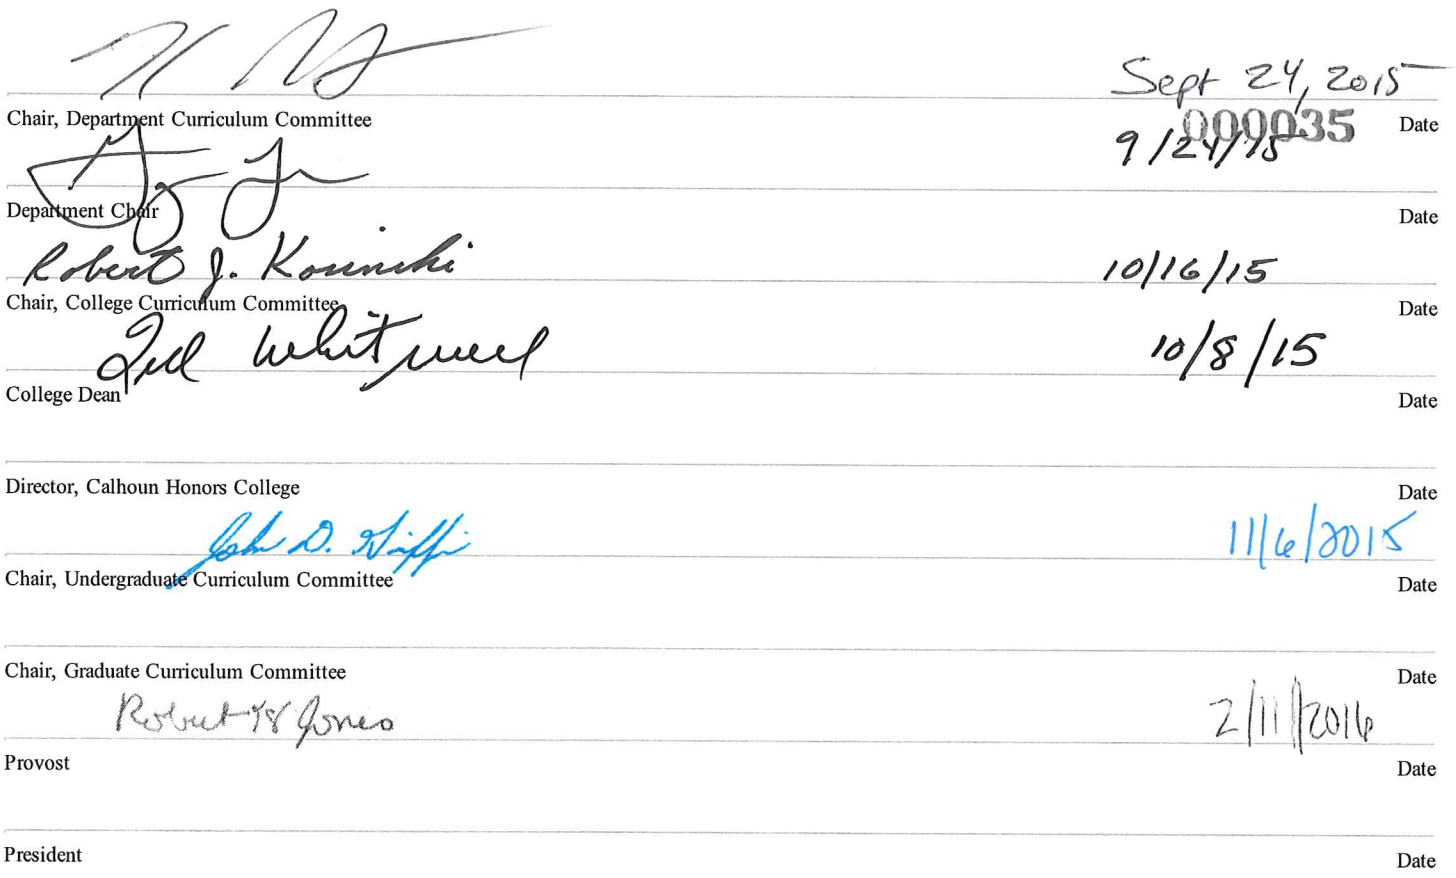 Sept 24, 2015
Chair, Department Curriculum Committee Date
000035
9/24/15
Department Chair Date
Robert J. Kosinski 10/16/15
Chair, College Curriculum Committee Date
Ted Whitwell 10/8/15
College Dean Date
Director, Calhoun Honors College Date
John D. Griffin 11/6/2015
Chair, Undergraduate Curriculum Committee Date
Chair, Graduate Curriculum Committee Date
Robert H Jones 2/11/2016
Provost Date
President Date